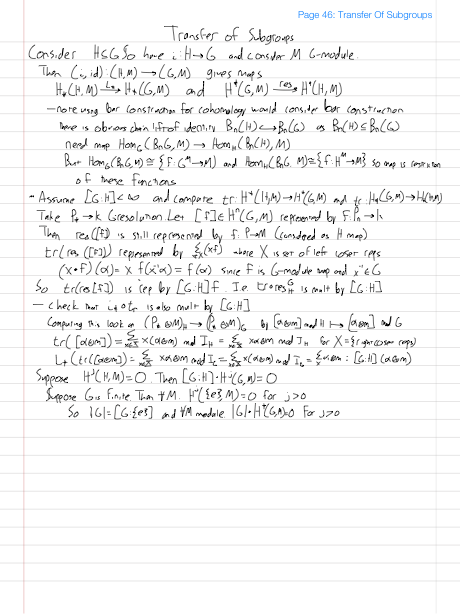 Page 46: Transfer Of Subgroups
Transfer of Subgroups
Consider H≤G So have i: H→G and consider M G-module
Then (i, id): (H, M) → (G, M) gives maps
H_*(H, M) →^{i_*} H_*(G, M) and H^*(G, M) →^{res} H^*(H, M)
- note using bar construction for cohomology would consider bar construction
there is obvious chain lift of identity B_n(H) ↪ B_n(G) as B_n(H) ≤ B_n(G)
need map Hom_G(B_nG, M) → Hom_H(B_n(H), M)
But Hom_G(B_nG, M) ≅ {f: G^n→M} and Hom_H(B_nG, M) ≅ {f: H^n→M} so map is restriction
of these functions
- Assume [G:H]<∞ and compute tr: H^*(H, M) → H^*(G, M) and tr: H_*(G, M) → H_*(H, M)
Take P_* → k G resolution. Let [f] ∈ H^n(G, M) represented by f: P_n →
Then res([f]) is still represented by f: P→M (considered as H map)
tr(res([f])) represented by Σ_{x∈X}(x·f) where X is set of left coset reps
(x·f)(α) = x f(x^{-1}α) = f(α) since f is G-module map and x^{-1}∈G
So tr(res[f]) is rep by [G:H]f. I.e. tr∘res_H^G is mult by [G:H]
- check that i_*∘tr is also mult by [G:H]
Computing this look on (P_n⊗M)_H → (P_n⊗M)_G by [α⊗m] mod H ↦ [α⊗m] mod G
tr([α⊗m]) = Σ_{x∈X} x(α⊗m) mod I_H = Σ_{x∈X} xα⊗m mod I_H for X = {right coset reps}
i_*(tr([α⊗m])) = Σ_{x∈X} xα⊗m mod I_G = Σ_{x∈X} x(α⊗m) mod I_G = Σ_x α⊗m = [G:H](α⊗m)
Suppose H^j(H, M) = 0. Then [G:H]·H^j(G, M) = 0
Suppose G is finite. Then ∀M. H^j({e}, M) = 0 for j>0
So |G| = [G:{e}] and ∀M module |G|·H^j(G, M) = 0 for j>0